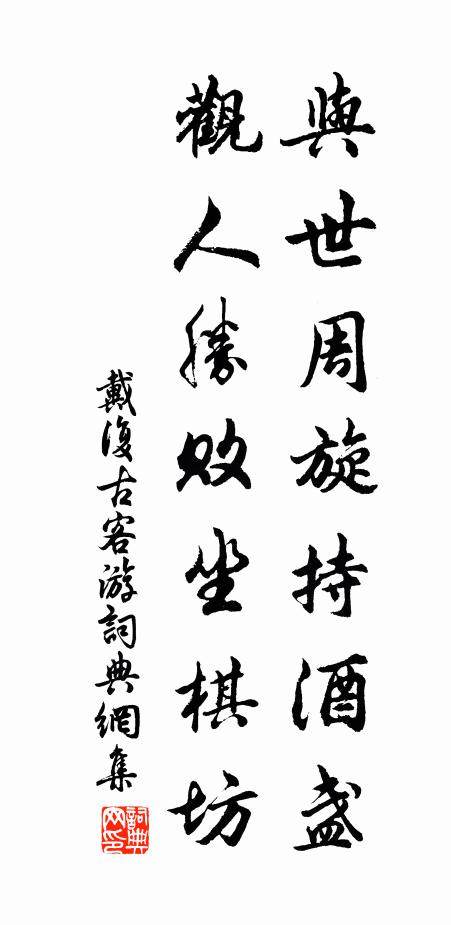 與世周旋持酒盞
觀人勝敗坐棋坊
戴復古客游詞典網集
詞典网印